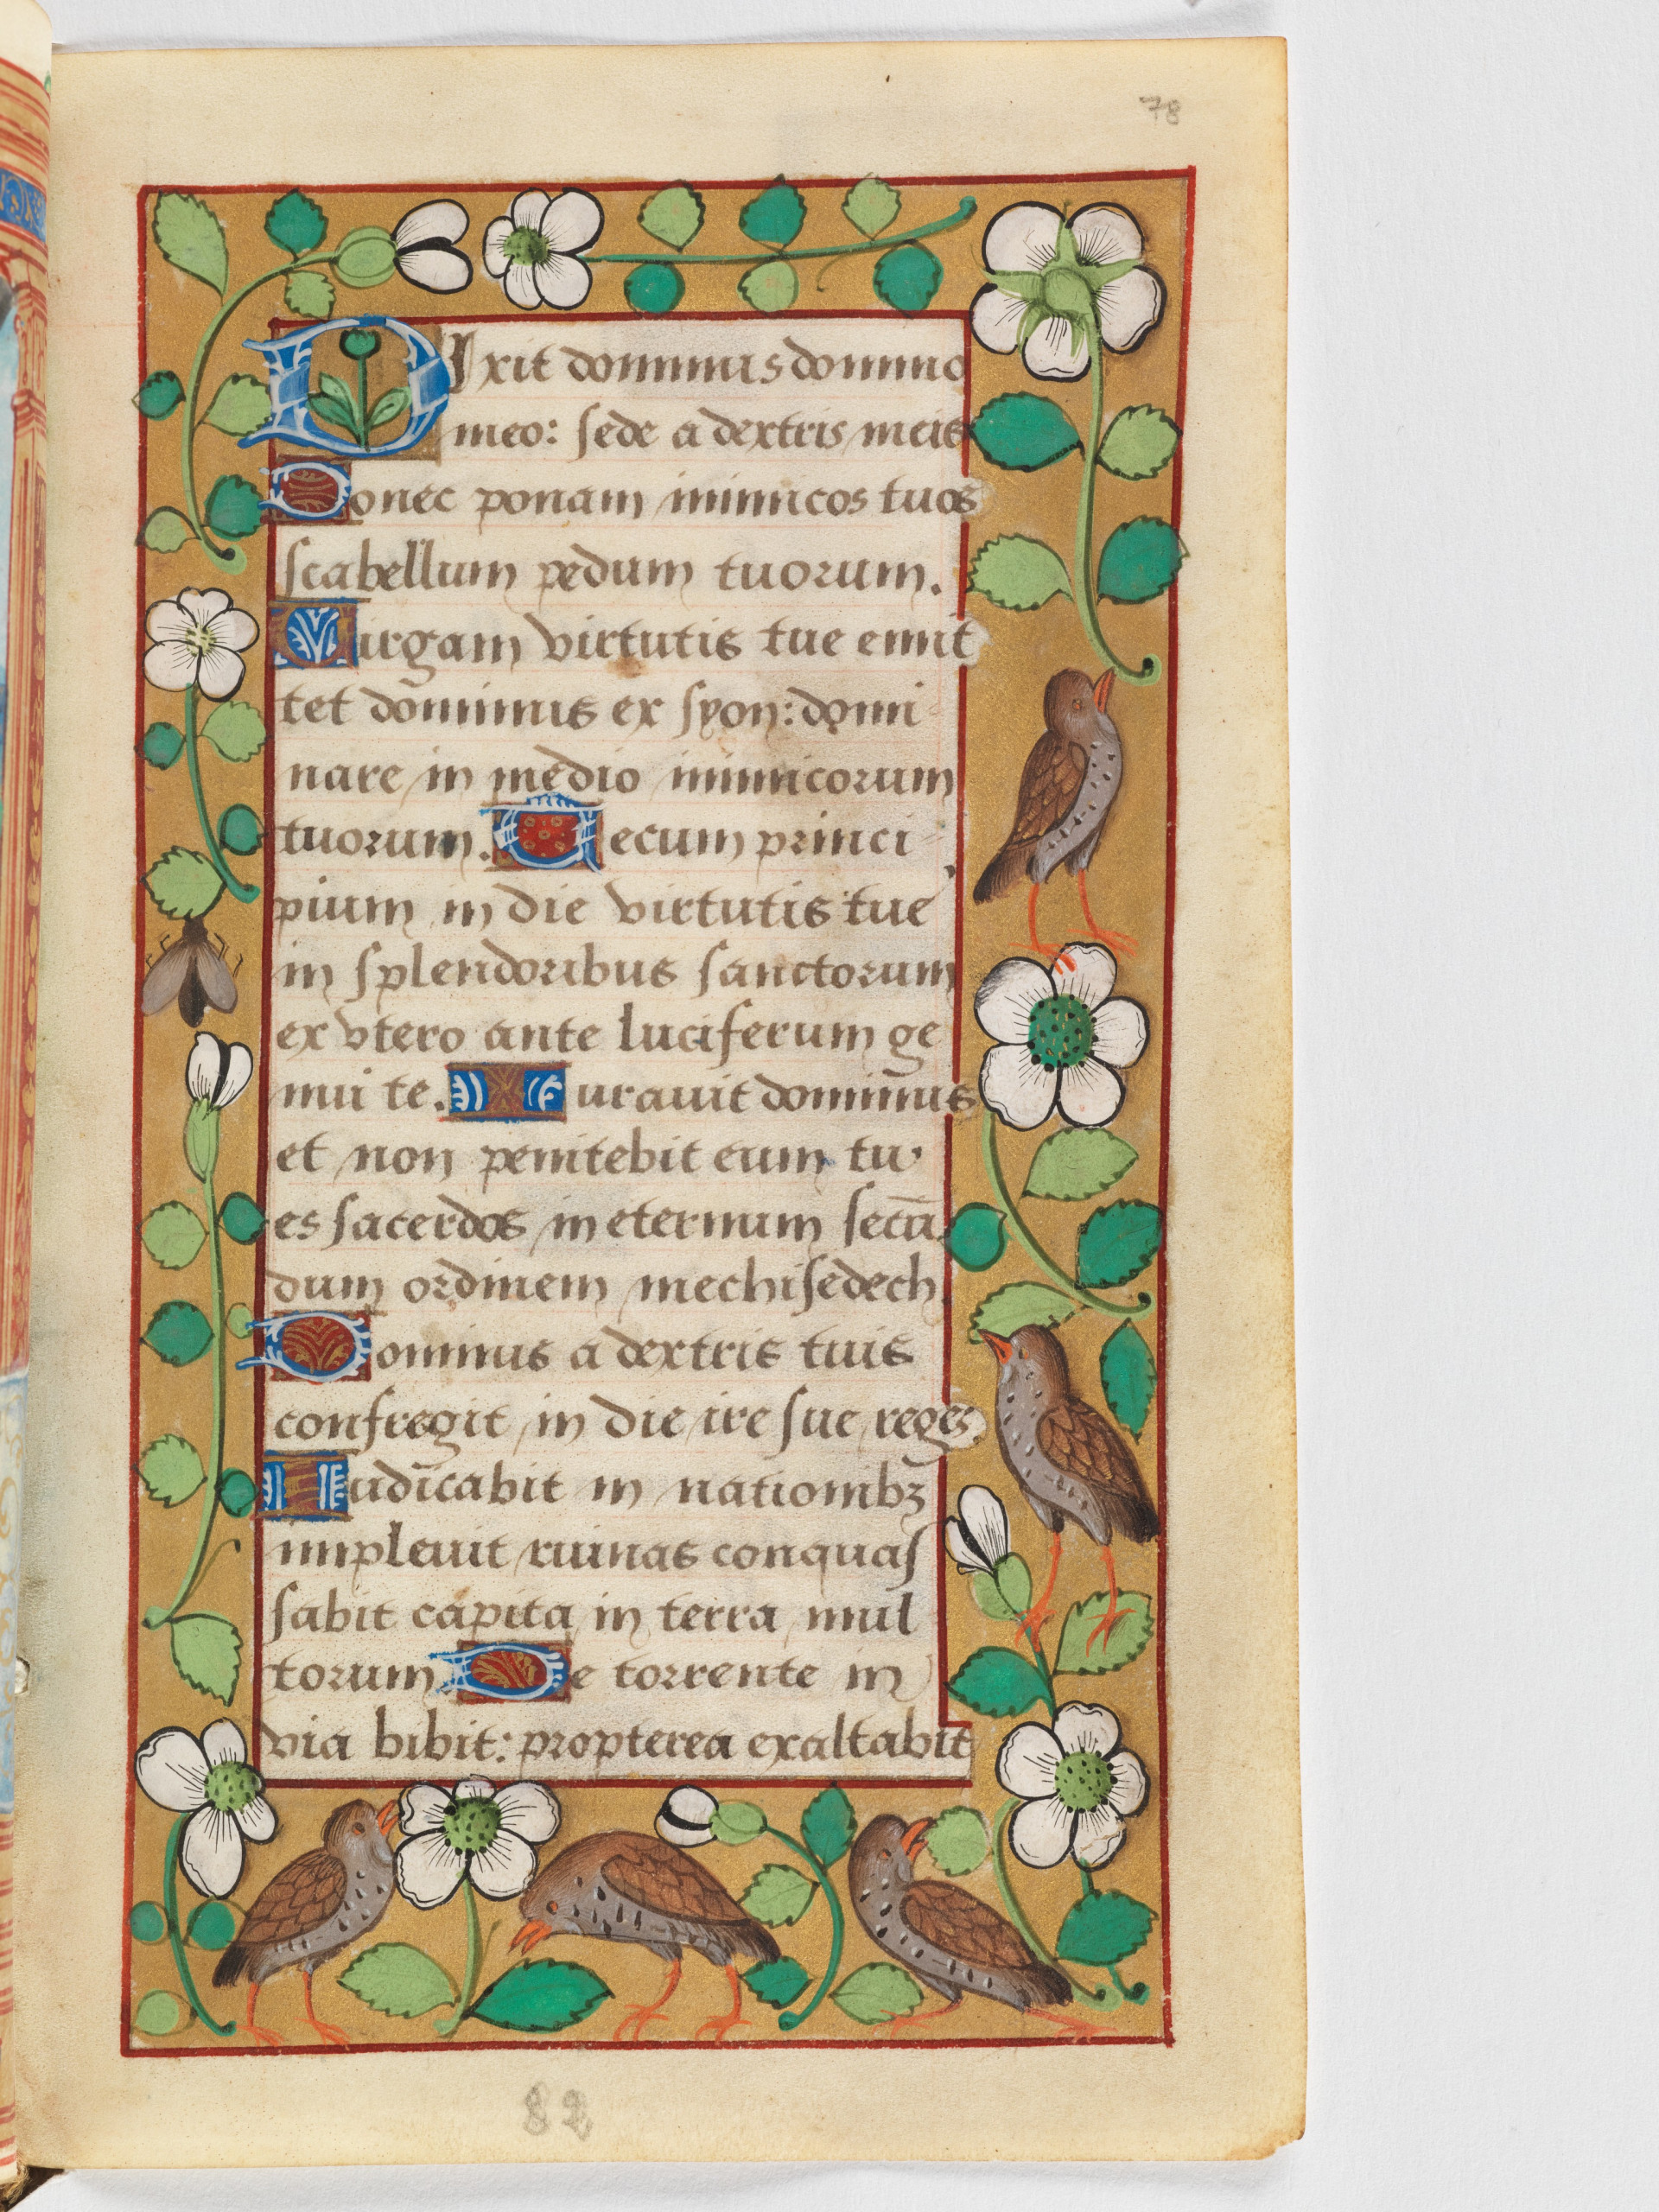 78
Dixit dominus domino
meo: sede a dextris meis
Donec ponam inimicos tuos
scabellum pedum tuorum.
Virgam virtutis tue emit
tet dominus ex syon: domi-
nare in medio inimicorum
tuorum. Tecum princi-
pium in die virtutis tue
in splendoribus sanctorum
ex vtero ante luciferum ge
nui te. Iurauit dominus
et non penitebit eum tu
es sacerdos in eternum secū
dum ordinem mechisedech.
Dominus a dextris tuis
confregit in die ire sue reges.
Iudicabit in nationibꝫ
impleuit ruinas conquas
sabit capita in terra mul
torum. De torrente in
via bibit: propterea exaltabit
82